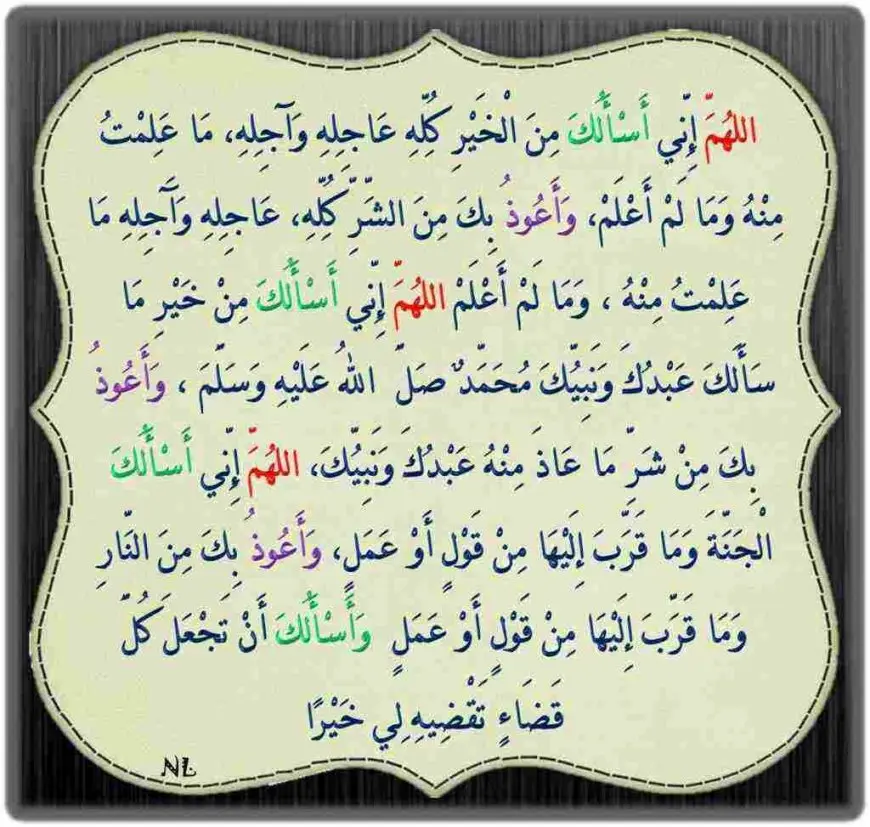 اللهُمَّ إِنِّي أَسْأَلُكَ مِنَ الْخَيْرِ كُلِّهِ عَاجِلِهِ وَآجِلِهِ، مَا عَلِمْتُ
مِنْهُ وَمَا لَمْ أَعْلَمْ، وَأَعُوذُ بِكَ مِنَ الشَّرِّ كُلِّهِ، عَاجِلِهِ وَآجِلِهِ مَا
عَلِمْتُ مِنْهُ ، وَمَا لَمْ أَعْلَمْ اللهُمَّ إِنِّي أَسْأَلُكَ مِنْ خَيْرِ مَا
سَأَلَكَ عَبْدُكَ وَنَبِيُّكَ مُحَمَّدٌ صَلّ اللهُ عَلَيْهِ وَسَلَّمَ ، وَأَعُوذُ
بِكَ مِنْ شَرِّ مَا عَاذَ مِنْهُ عَبْدُكَ وَنَبِيُّكَ، اللهُمَّ إِنِّي أَسْأَلُكَ
الْجَنَّةَ وَمَا قَرَّبَ إِلَيْهَا مِنْ قَوْلٍ أَوْ عَمَلٍ، وَأَعُوذُ بِكَ مِنَ النَّارِ
وَمَا قَرَّبَ إِلَيْهَا مِنْ قَوْلٍ أَوْ عَمَلٍ وَأَسْأَلُكَ أَنْ تَجْعَلَ كُلَّ
قَضَاءٍ تَقْضِيهِ لِي خَيْرًا
NL